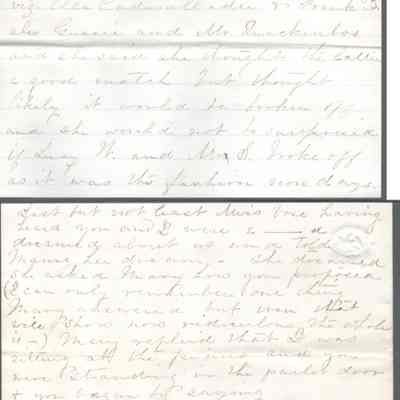 viz Ella Cadwallader & Frank S.
also Gussie and Mr. Quackenbos
and she said she thought the latter
a good match but thought
likely it would be broken off
and she would not be surprised
if Lucy W. and Mr. S. broke off
as it was the fashion now days.
Last but not least Miss Vose having
heard you and I were e——d
dreamed about us and told
Mame her dream. She dreamed
she asked Mary how you proposed
(I can only remember one thing
Mary answered but even that
will show how ridiculous the whole
Mary replied that I was
sitting at the piano and you
were standing in the parlor door
& you began by saying